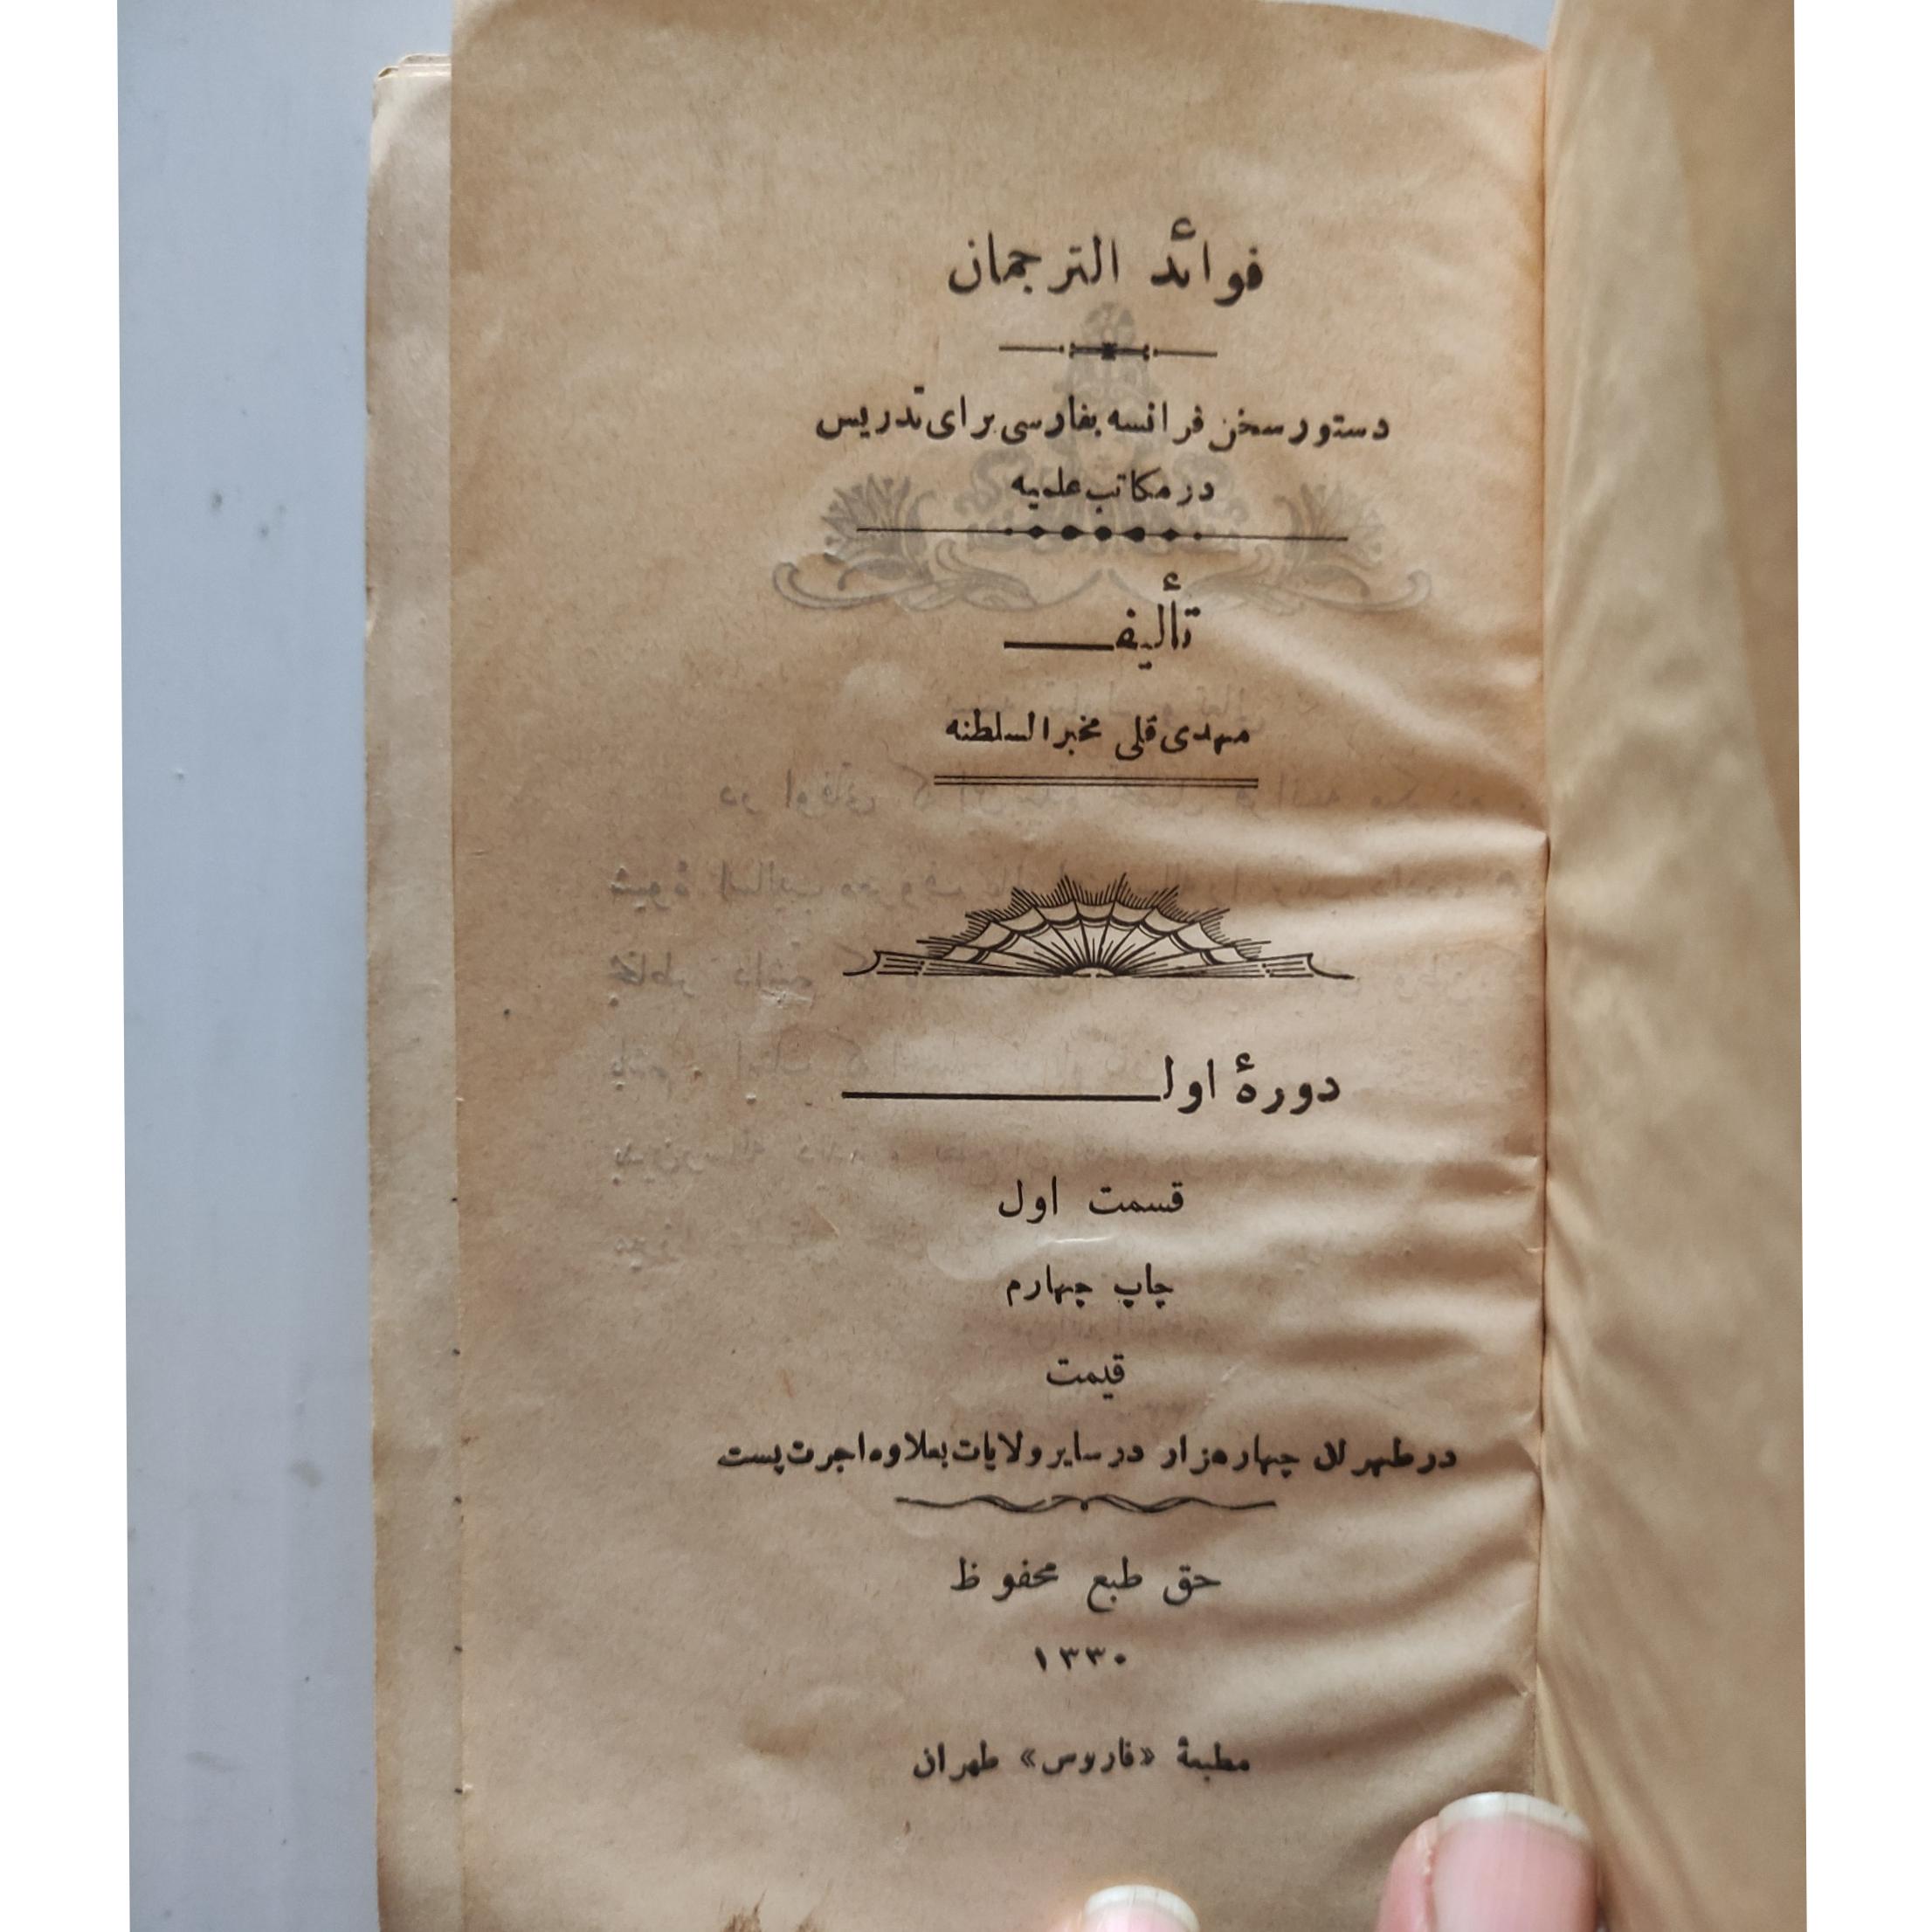 فوائد الترجمان
دستور سخن فرانسه بفارسی برای تدریس
در مکاتب علمیه
تألیف
مهدی قلی مخبرالسلطنه
دورهٔ اول
قسمت اول
چاپ چهارم
قیمت
در طهران چهار هزار در سایر ولایات بعلاوه اجرت پست
حق طبع محفوظ
۱۳۳۰
مطبعهٔ «فاروس» طهران